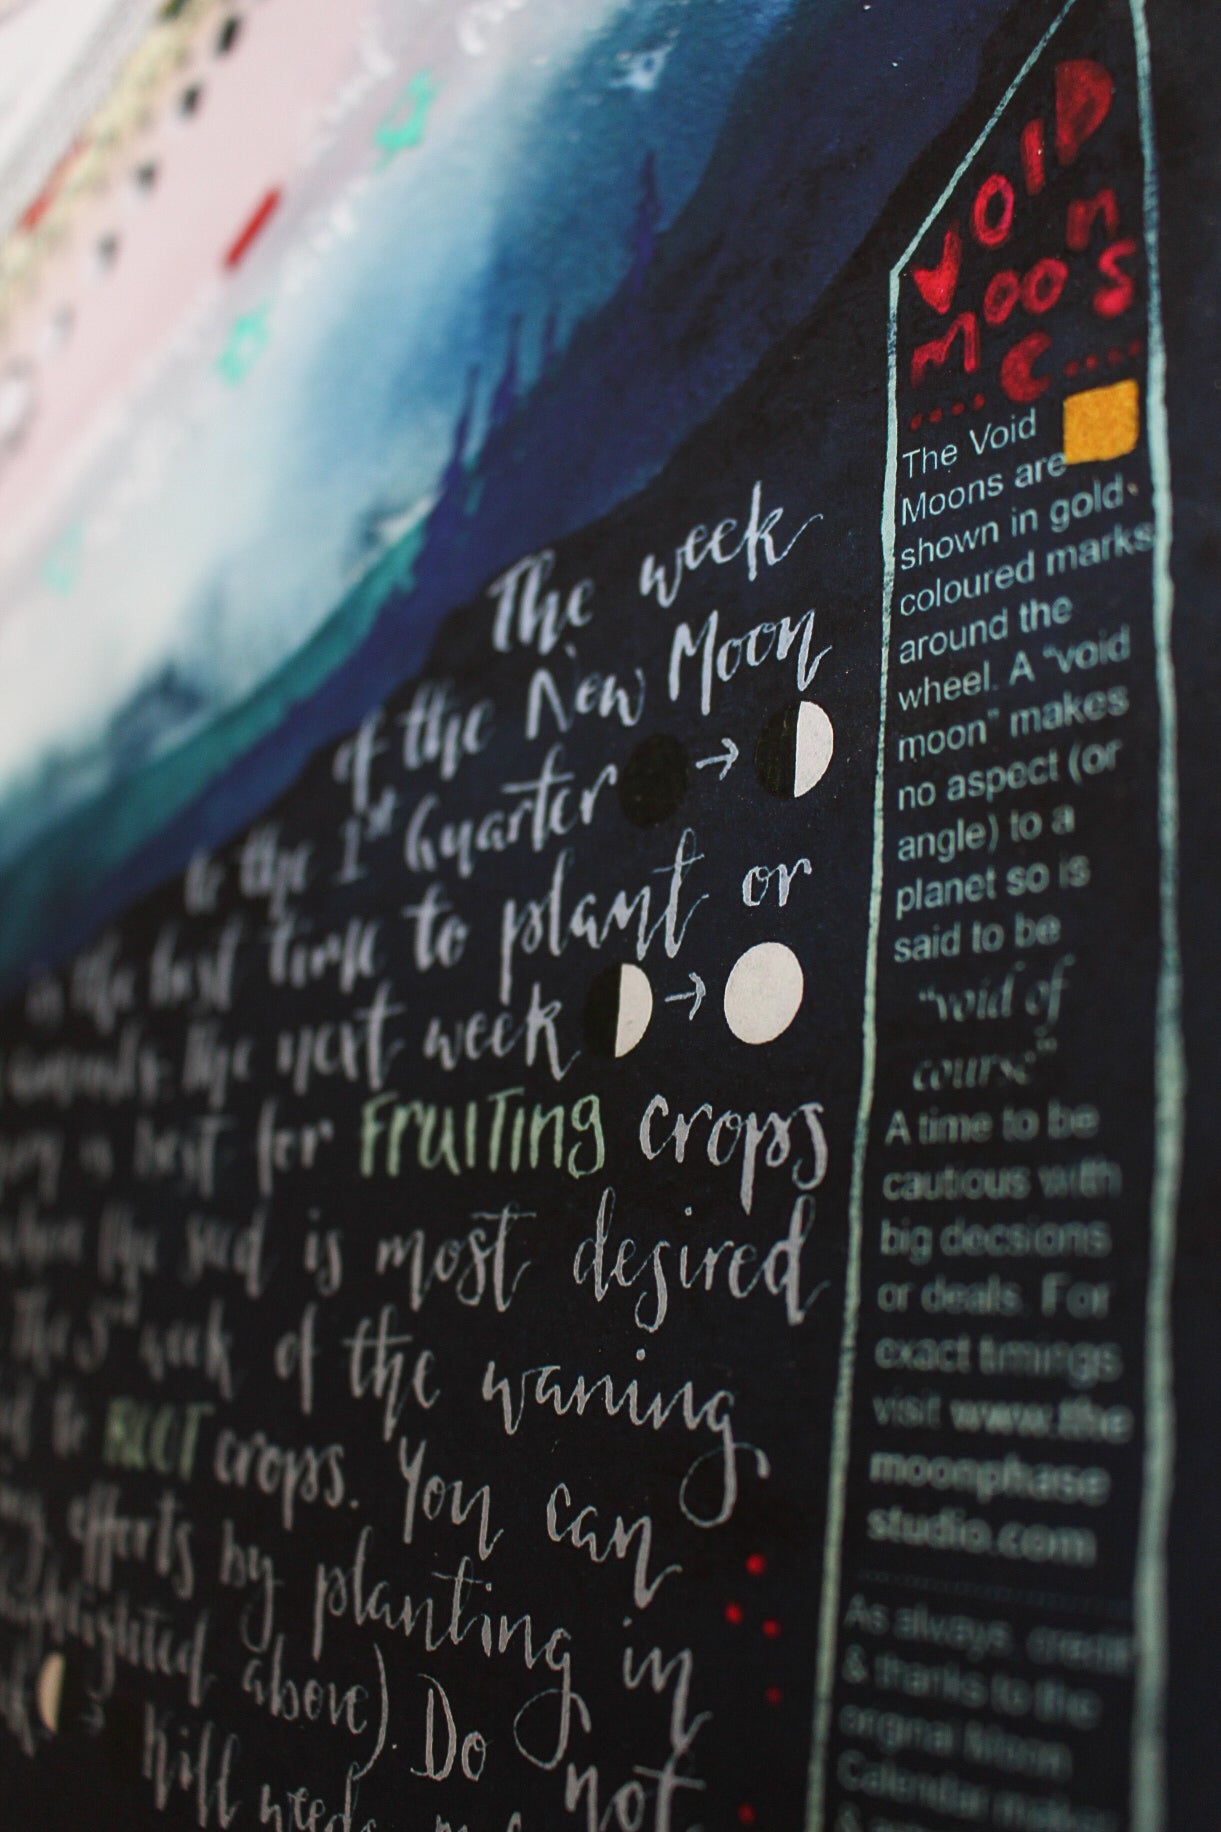 The week
of the New Moon
to the 1st Quarter →
is the best time to plant or
the next week →
is best for FRUITING crops
when the seed is most desired
The 3rd week of the waning
ROOT crops. You can
efforts by planting in
highlighted above). Do not
Kill weeds
VOID
MOONS
The Void
Moons are
shown in gold-
coloured marks
around the
wheel. A "void
moon" makes
no aspect (or
angle) to a
planet so is
said to be
"void of
course"
A time to be
cautious with
big decsions
or deals. For
exact timings
visit www.the
moonphase
studio.com
As always, credit
& thanks to the
original Moon
Calendar makers